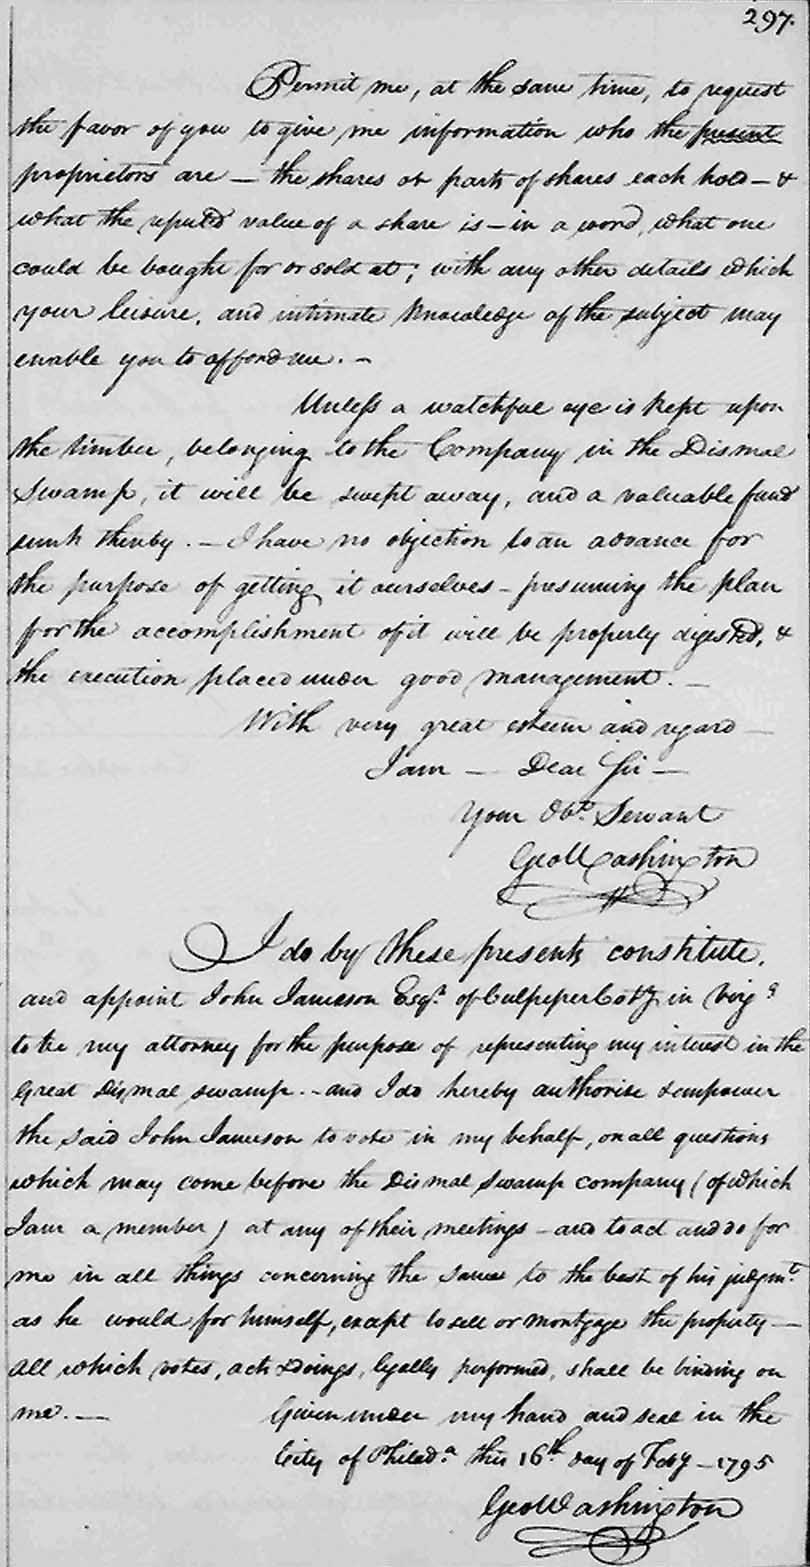 297.
Permit me, at the same time, to request
the favor of you to give me information who the present
proprietors are — the shares or parts of shares each hold — &
what the reputed value of a share is — in a word, what one
could be bought for or sold at; with any other details which
your leisure, and intimate knowledge of the subject may
enable you to afford me. —
Unless a watchful eye is kept upon
the timber, belonging to the Company in the Dismal
Swamp, it will be swept away, and a valuable fund
sunk thereby. — I have no objection to an advance for
the purpose of getting it ourselves — presuming the plan
for the accomplishment of it will be properly digested, &
the execution placed under good management. —
With very great esteem and regard —
I am — Dear Sir —
Your Obt. Servant
Go Washington
I do by these presents constitute,
and appoint John Jameson Esqr. of Culpeper Coty. in Virga
to be my attorney for the purpose of representing my interest in the
Great Dismal swamp. — and I do hereby authorise & empower
the said John Jameson to vote in my behalf, on all questions
which may come before the Dismal Swamp company (of which
I am a member) at any of their meetings — and to act and do for
me in all things concerning the same to the best of his judgmt.
as he would for himself, except to sell or mortgage the property —
all which votes, acts & doings, legally performed, shall be binding on
me. — Given under my hand and seal in the
City of Philada. this 16th day of Feby — 1795
Go Washington